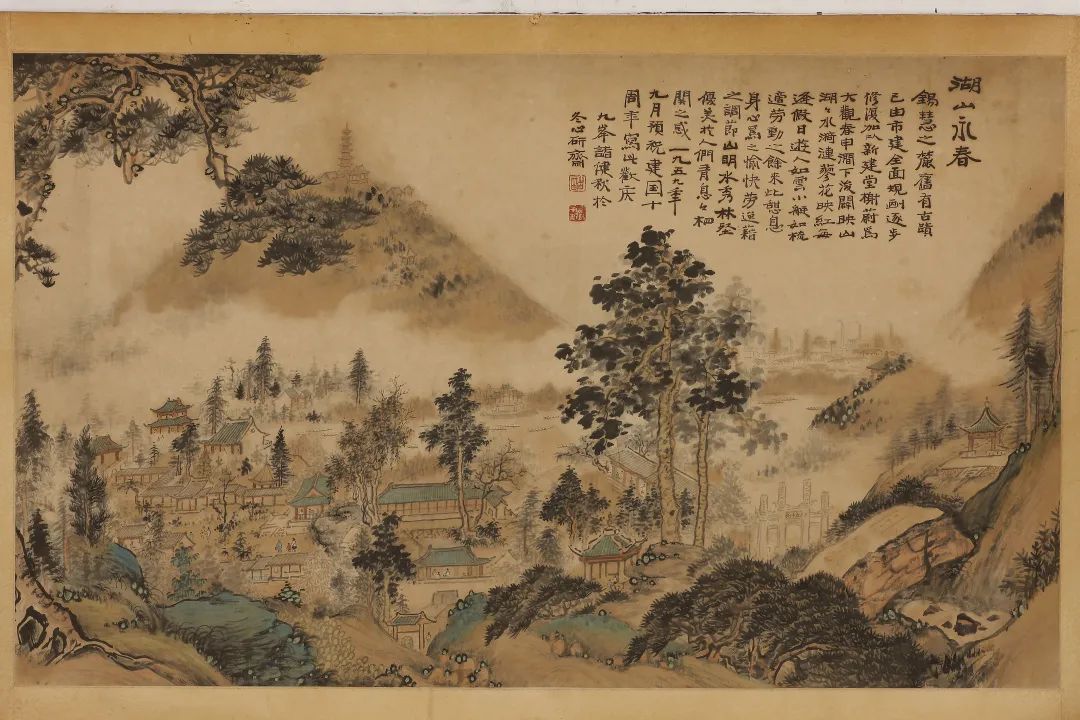 湖山永春
錫慧之麓舊有古蹟
已由市建全面規劃逐步
修復加以新建堂榭蔚爲
大觀春申澗下浚闢映山
湖々水漪漣蓼花映紅每
逢假日遊人如雲小艇如梳
適勞動之餘來此憩息
身心爲之愉快勞逸藉
之調節山明水秀林壑
優美於人們有息々相
關之感一九五九年
九月預祝建国十
周年寫此歡庆
九峯諸健秋於
冬心研齋